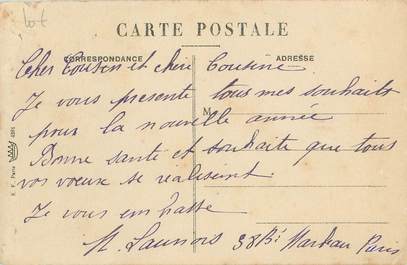 lot
CARTE POSTALE
CORRESPONDANCE
ADRESSE
Cher Cousin et chère Cousine
Je vous présente tous mes souhaits
M
pour la nouvelle année
Bonne santé et souhaite que tous
vos voeux se réalisent.
Je vous embrasse
M. Launois 38 Bd Paris
E. F. Paris
4391